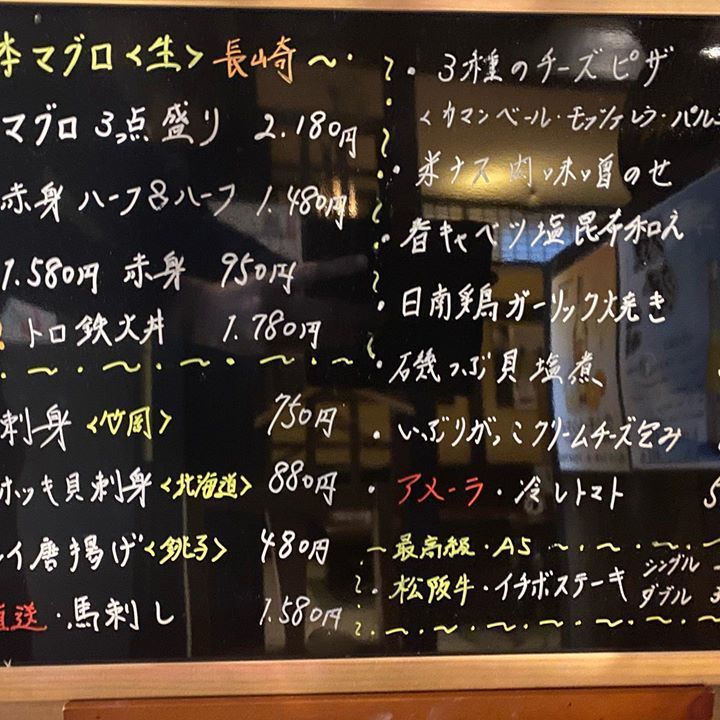 本マグロ<生>長崎～
マグロ3っ点盛り 2.180円
赤身ハーフ&ハーフ 1.480円
1.580円 赤身 950円
トロ鉄火丼 1.780円
刺身<竹岡> 750円
ホッキ貝刺身<北海道> 880円
イ唐揚げ<銚子> 480円
直送・馬刺し 1.580円
・3種のチーズピザ
<カマンベール・モッツァレラ・パル
・米ナス肉味噌のせ
・春キャベツ塩昆布和え
・日南鶏ガーリック焼き
・磯つぶ貝塩煮
・いぶりがっこクリームチーズ包み
・アメーラ・冷しトマト 5
～最高級・A5～
・松阪牛・イチボステーキ シングル
ダブル